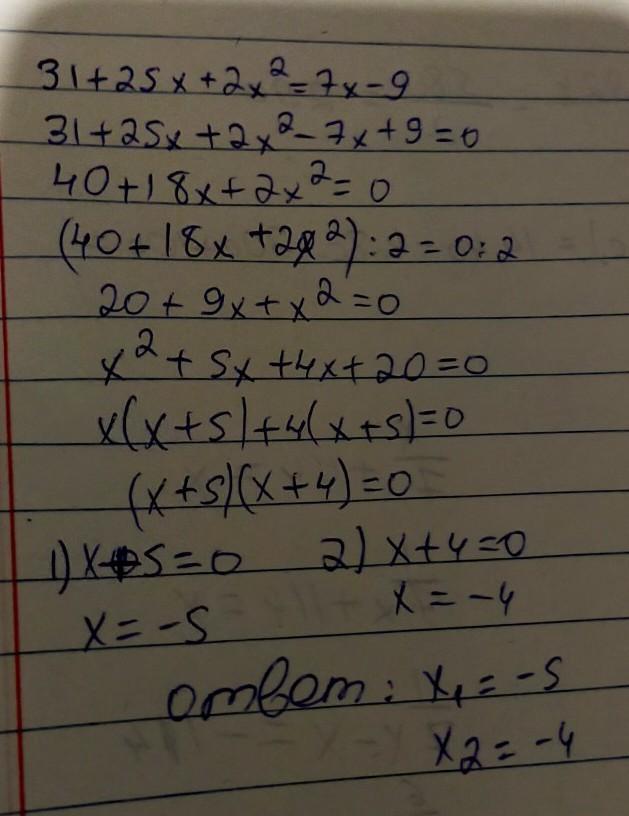 31+25x+2x²=7x-9
31+25x+2x²-7x+9=0
40+18x+2x²=0
(40+18x+2x²):2=0:2
20+9x+x²=0
x²+5x+4x+20=0
x(x+5)+4(x+5)=0
(x+5)(x+4)=0
1) x+5=0 2) x+4=0
x=-5 x=-4
ответ: x₁=-5
x₂=-4